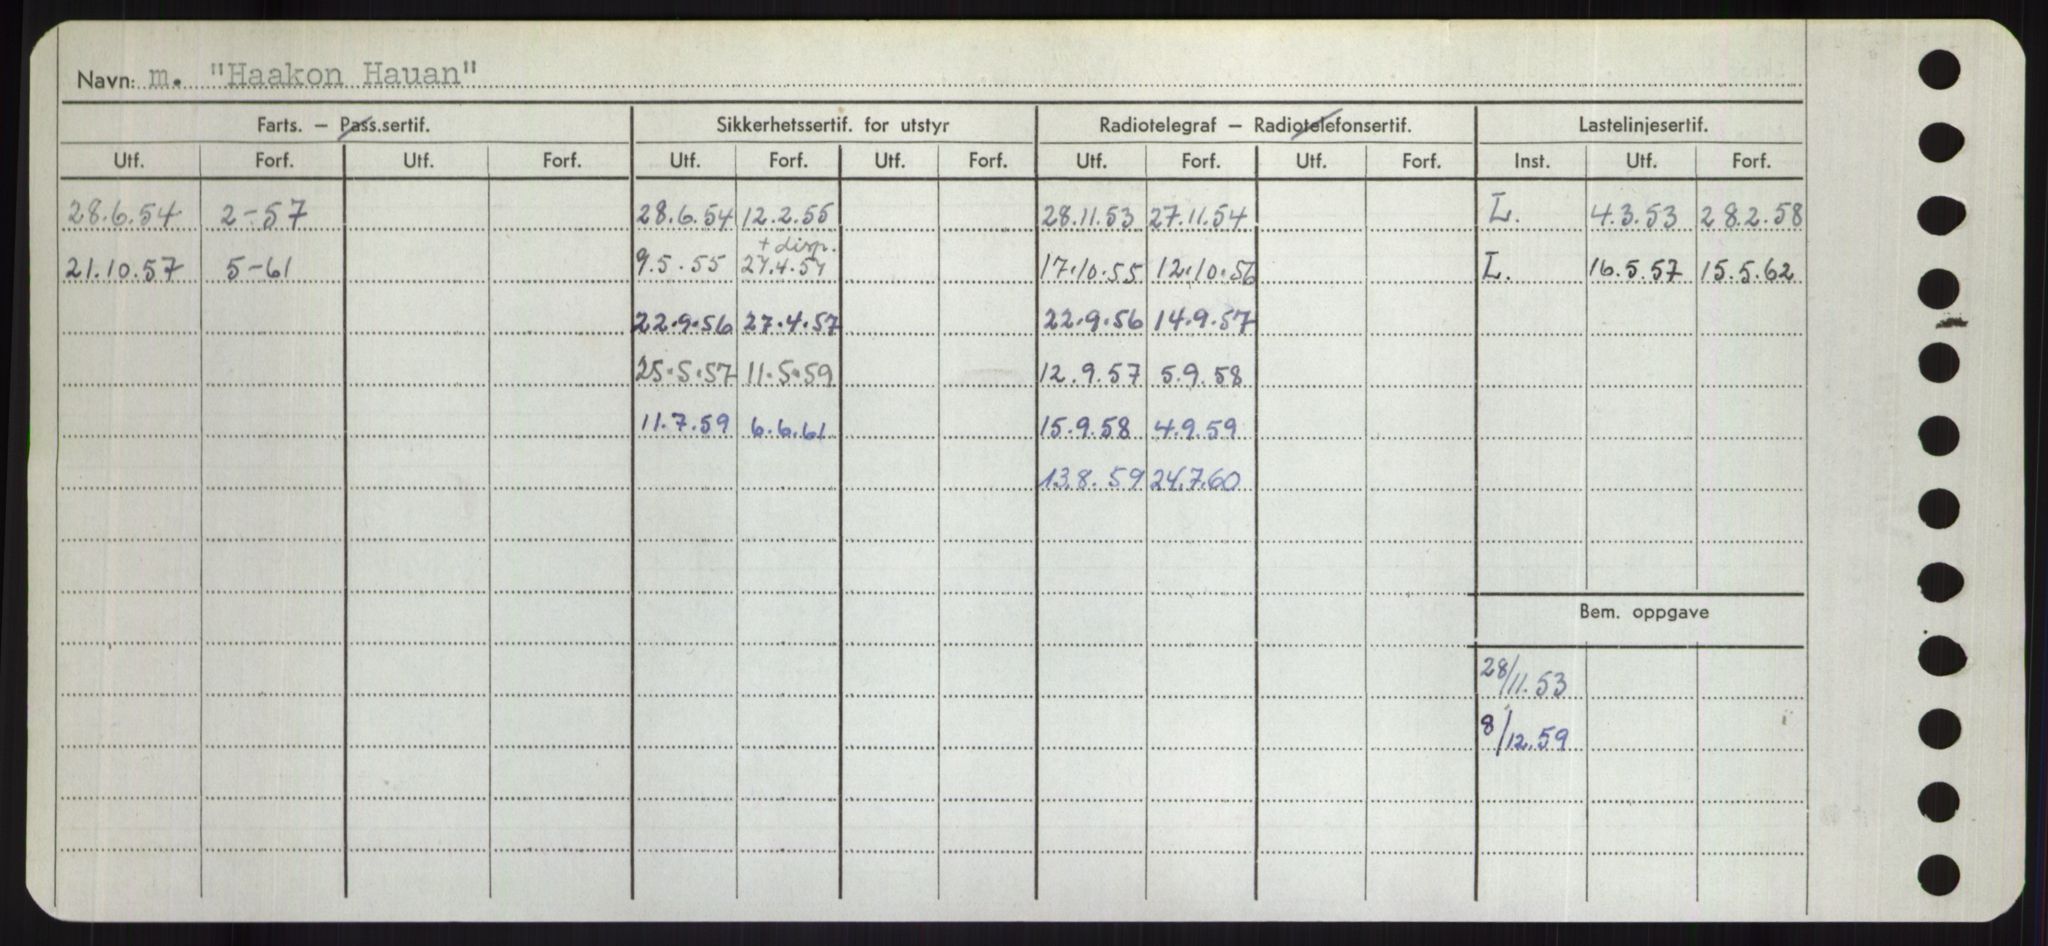 Navn: m. "Haakon Hauan"
Farts. — Pass.sertif. Sikkerhetssertif. for utstyr Radiotelegraf — Radiotelefonsertif. Lastelinjesertif.
Utf. Forf. Utf. Forf. Utf. Forf. Utf. Forf. Utf. Forf. Utf. Forf. Inst. Utf. Forf.
28.6.54 2-57 28.6.54 12.2.55 28.11.53 27.11.54 L. 4.3.53 28.2.58
+ disp.
21.10.57 5-61 9.5.55 27.4.57 17.10.55 12.10.56 L. 16.5.57 15.5.62
22.9.56 27.4.57 22.9.56 14.9.57
25.5.57 11.5.59 12.9.57 5.9.58
11.7.59 6.6.61 15.9.58 4.9.59
13.8.59 24.7.60
Bem. oppgave
28/11.53
8/12.59